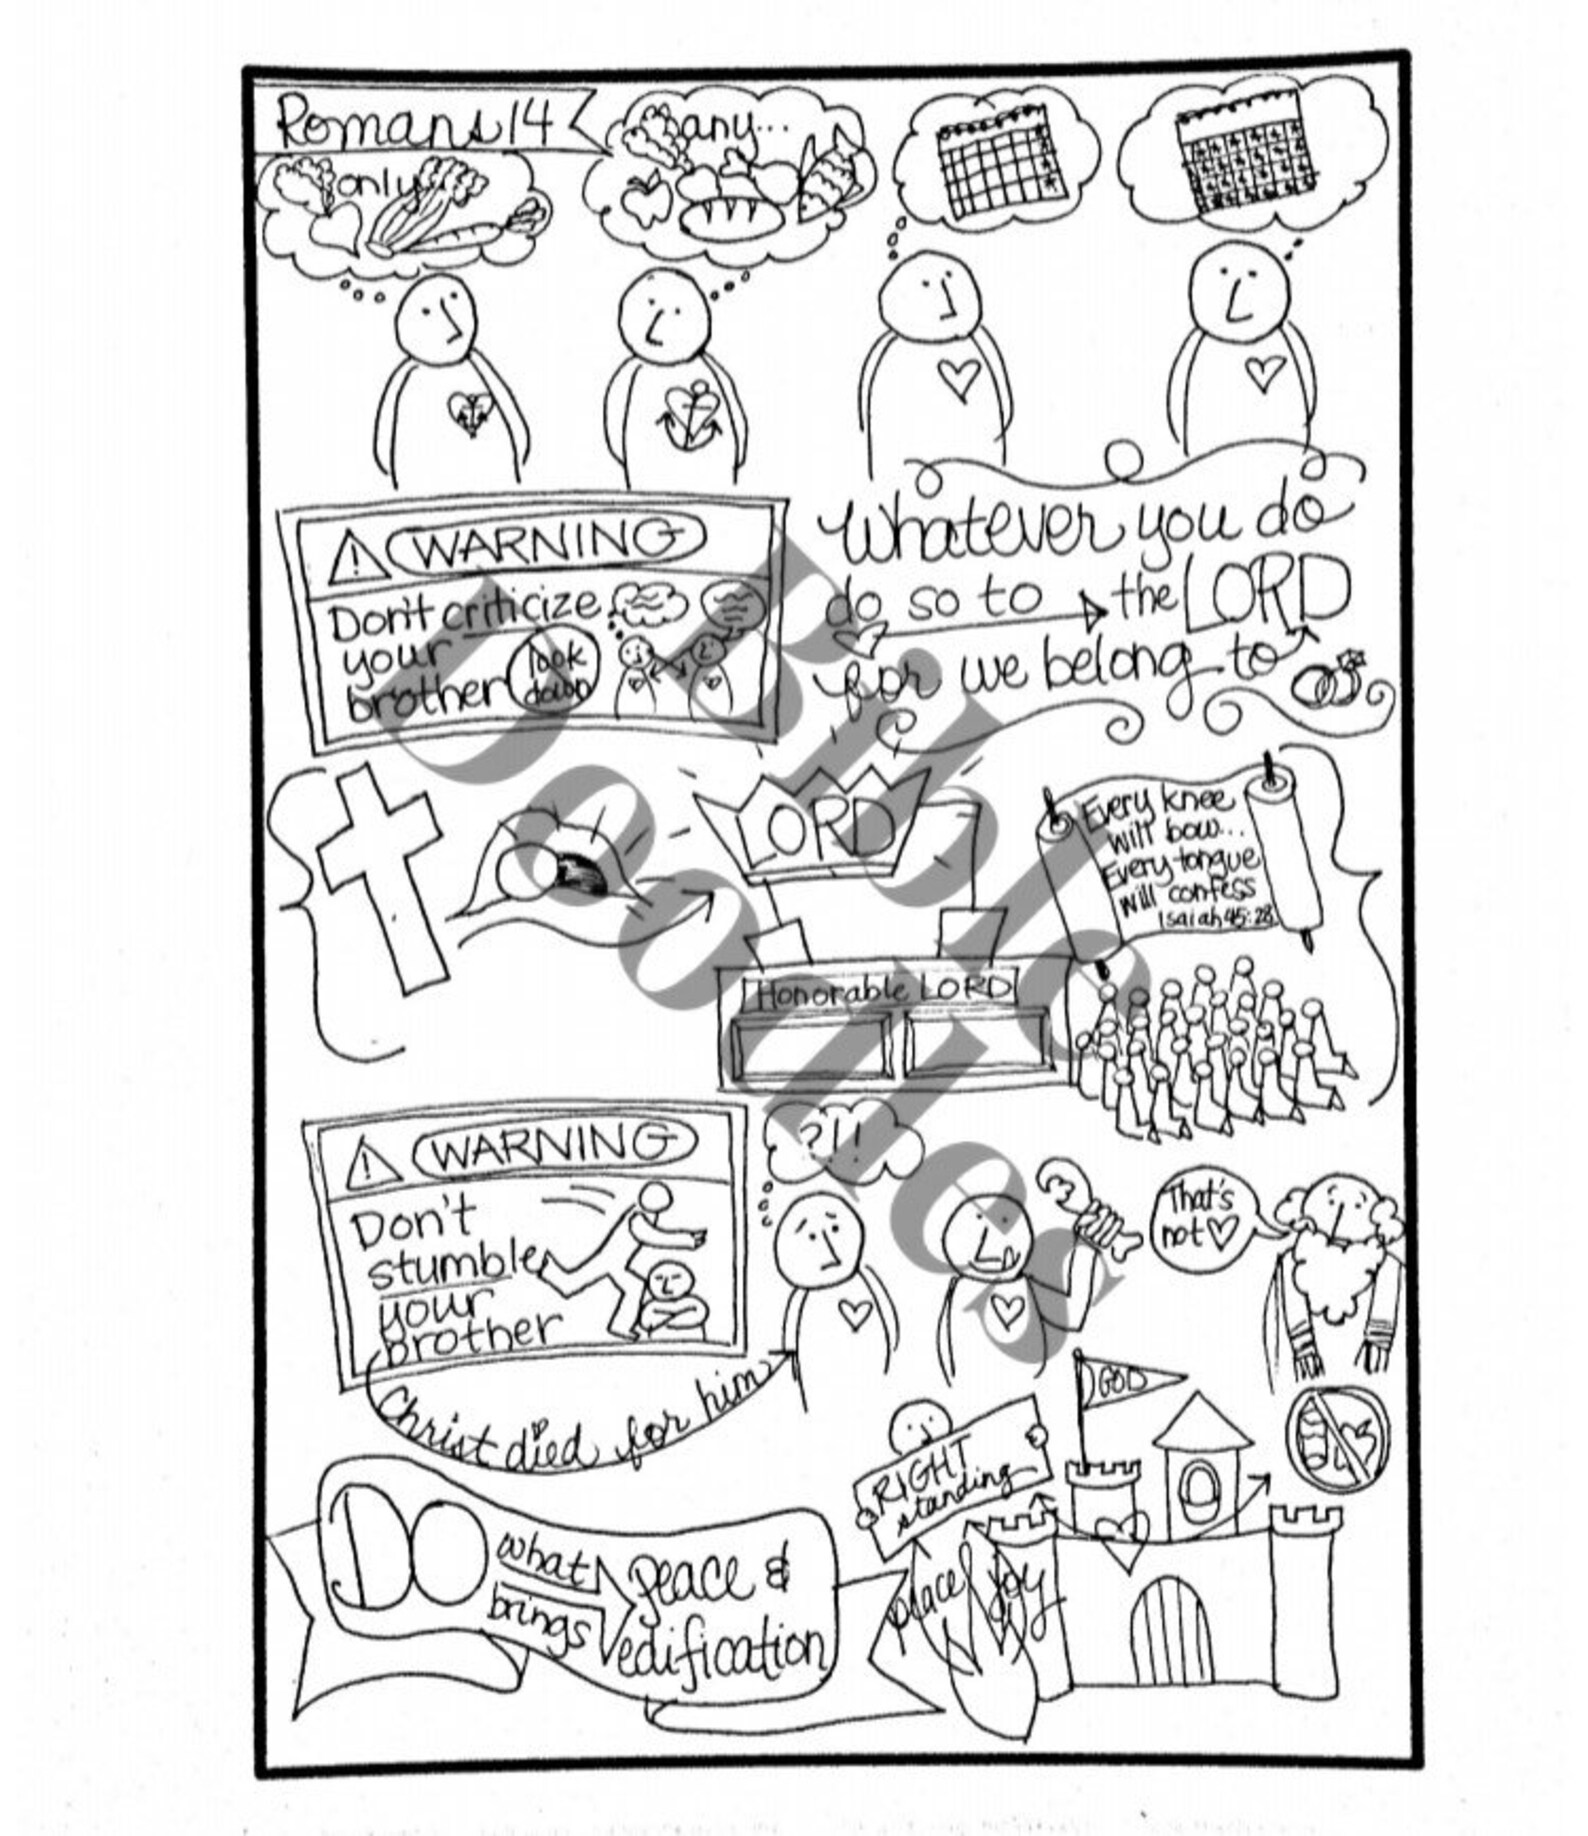 Romans 14
only
any...
WARNING
Don't criticize
your
brother
look
down
Whatever you do
do so to the LORD
for we belong to
LORD
Honorable LORD
Every knee
will bow...
Every tongue
will confess
Isaiah 45:23
WARNING
Don't
stumble
your
brother
Christ died for him
?!!
That's
not
GOD
RIGHT
standing
peace
joy
DO
what
brings
peace &
edification
Bible
Doodles